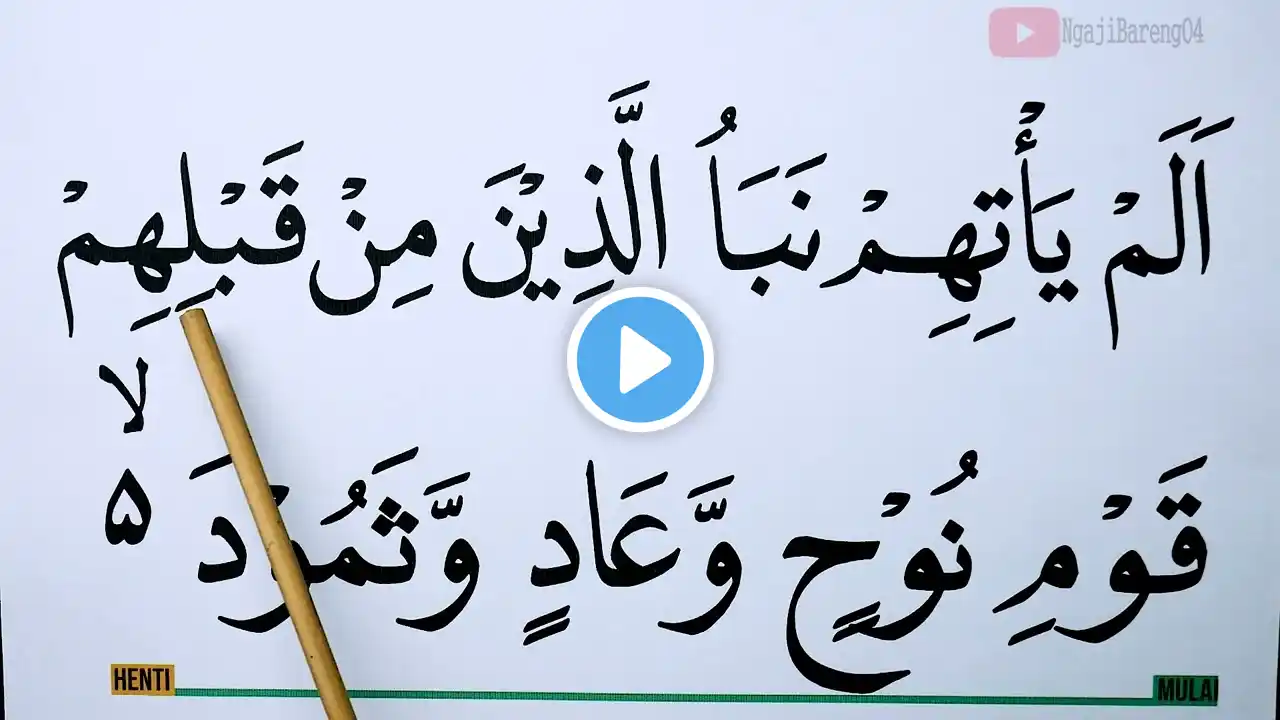 NgajiBareng04
اَلَمْ يَأْتِهِمْ نَبَاُ الَّذِيْنَ مِنْ قَبْلِهِمْ
قَوْمِ نُوْحٍ وَّعَادٍ وَّثَمُوْدَ ۵ لا
HENTI MULAI